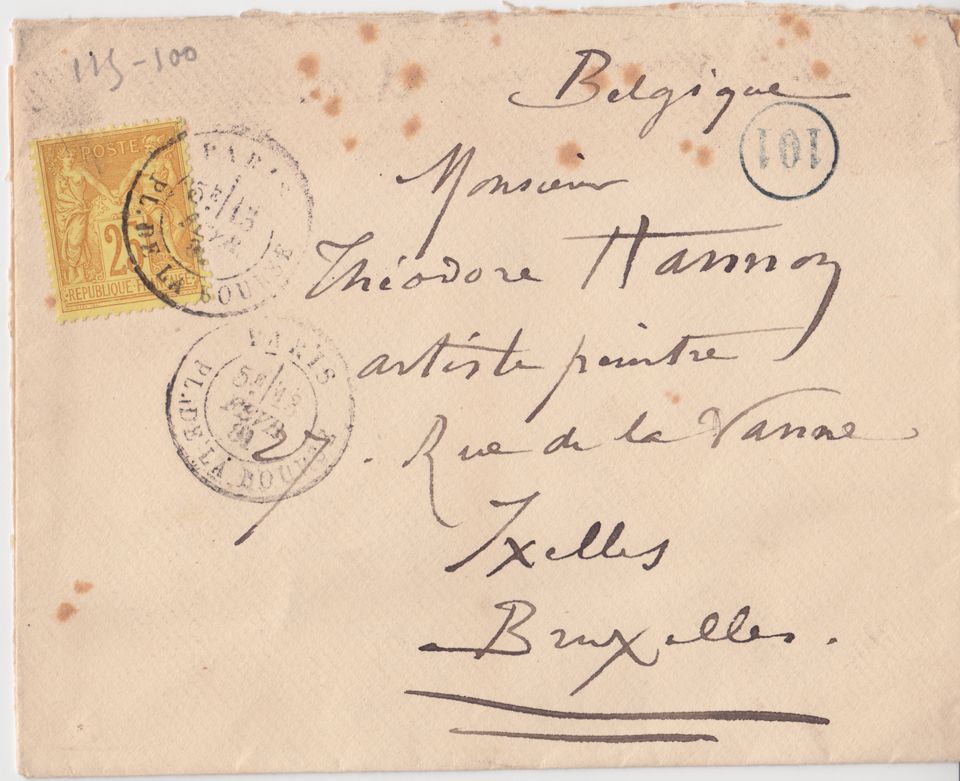 115-100
Belgique
101
Monsieur
Théodore Hannon
artiste peintre
27. Rue de la Vanne
Ixelles
Bruxelles.
POSTE
25
REPUBLIQUE FRANÇAISE
PARIS
5E/15
FEVR
PL. DE LA BOURSE
PARIS
5E/15
FEVR
81
PL. DE LA BOURSE